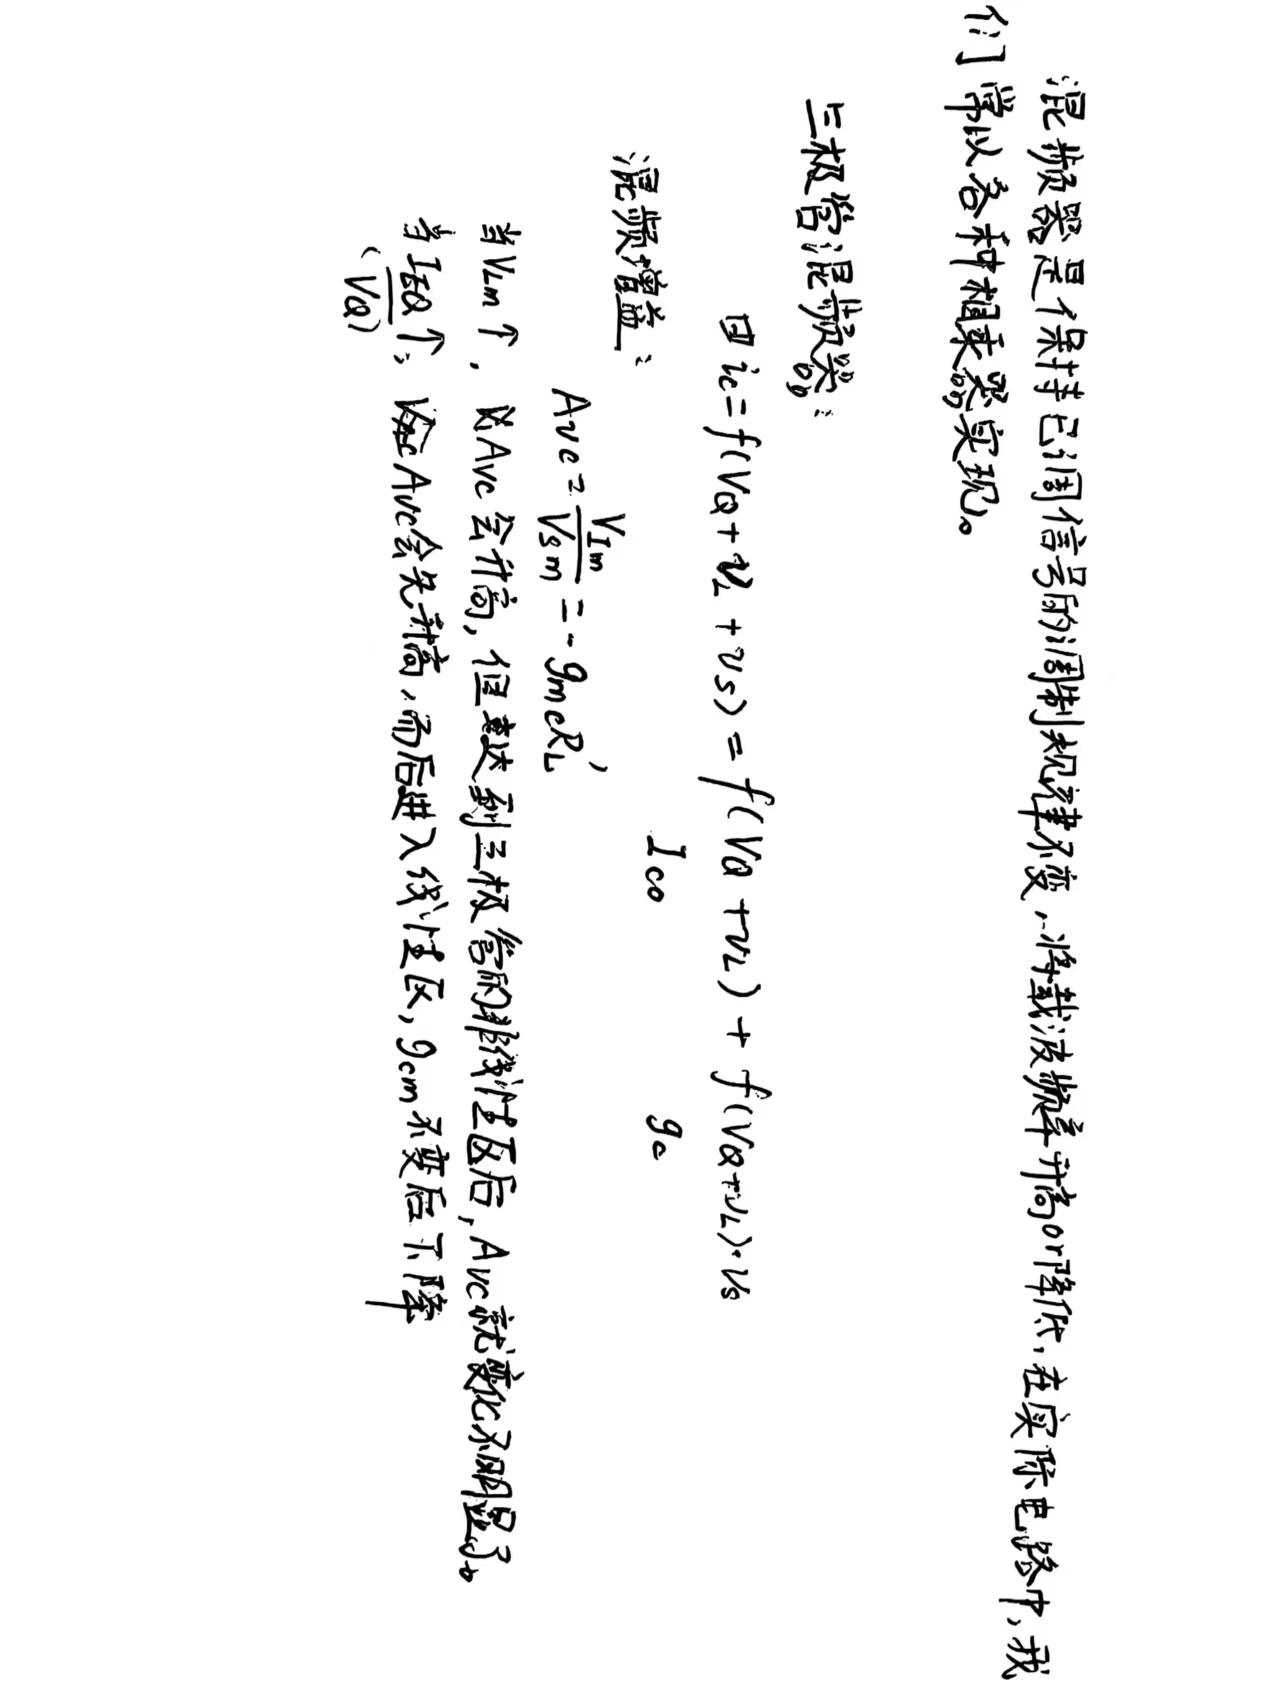 混频器是保持已调信号的调制规律不变,将载波频率升高or降低,在实际电路中,我
们常以各种相乘器实现。
三极管混频器:
由 ic=f(VQ+vL+vs)=f(VQ+vL)+f(VQ+vL)·vs
Ico gc
混频增益:
Avc=VIm/Vsm=-gmcRL'
当VLm↑,则Avc会升高,但要达到三极管的非线性区后,Avc就变化不明显了。
当IEQ↑,Avc会先升高,而后进入线性区,gcm不变后下降
(VQ)